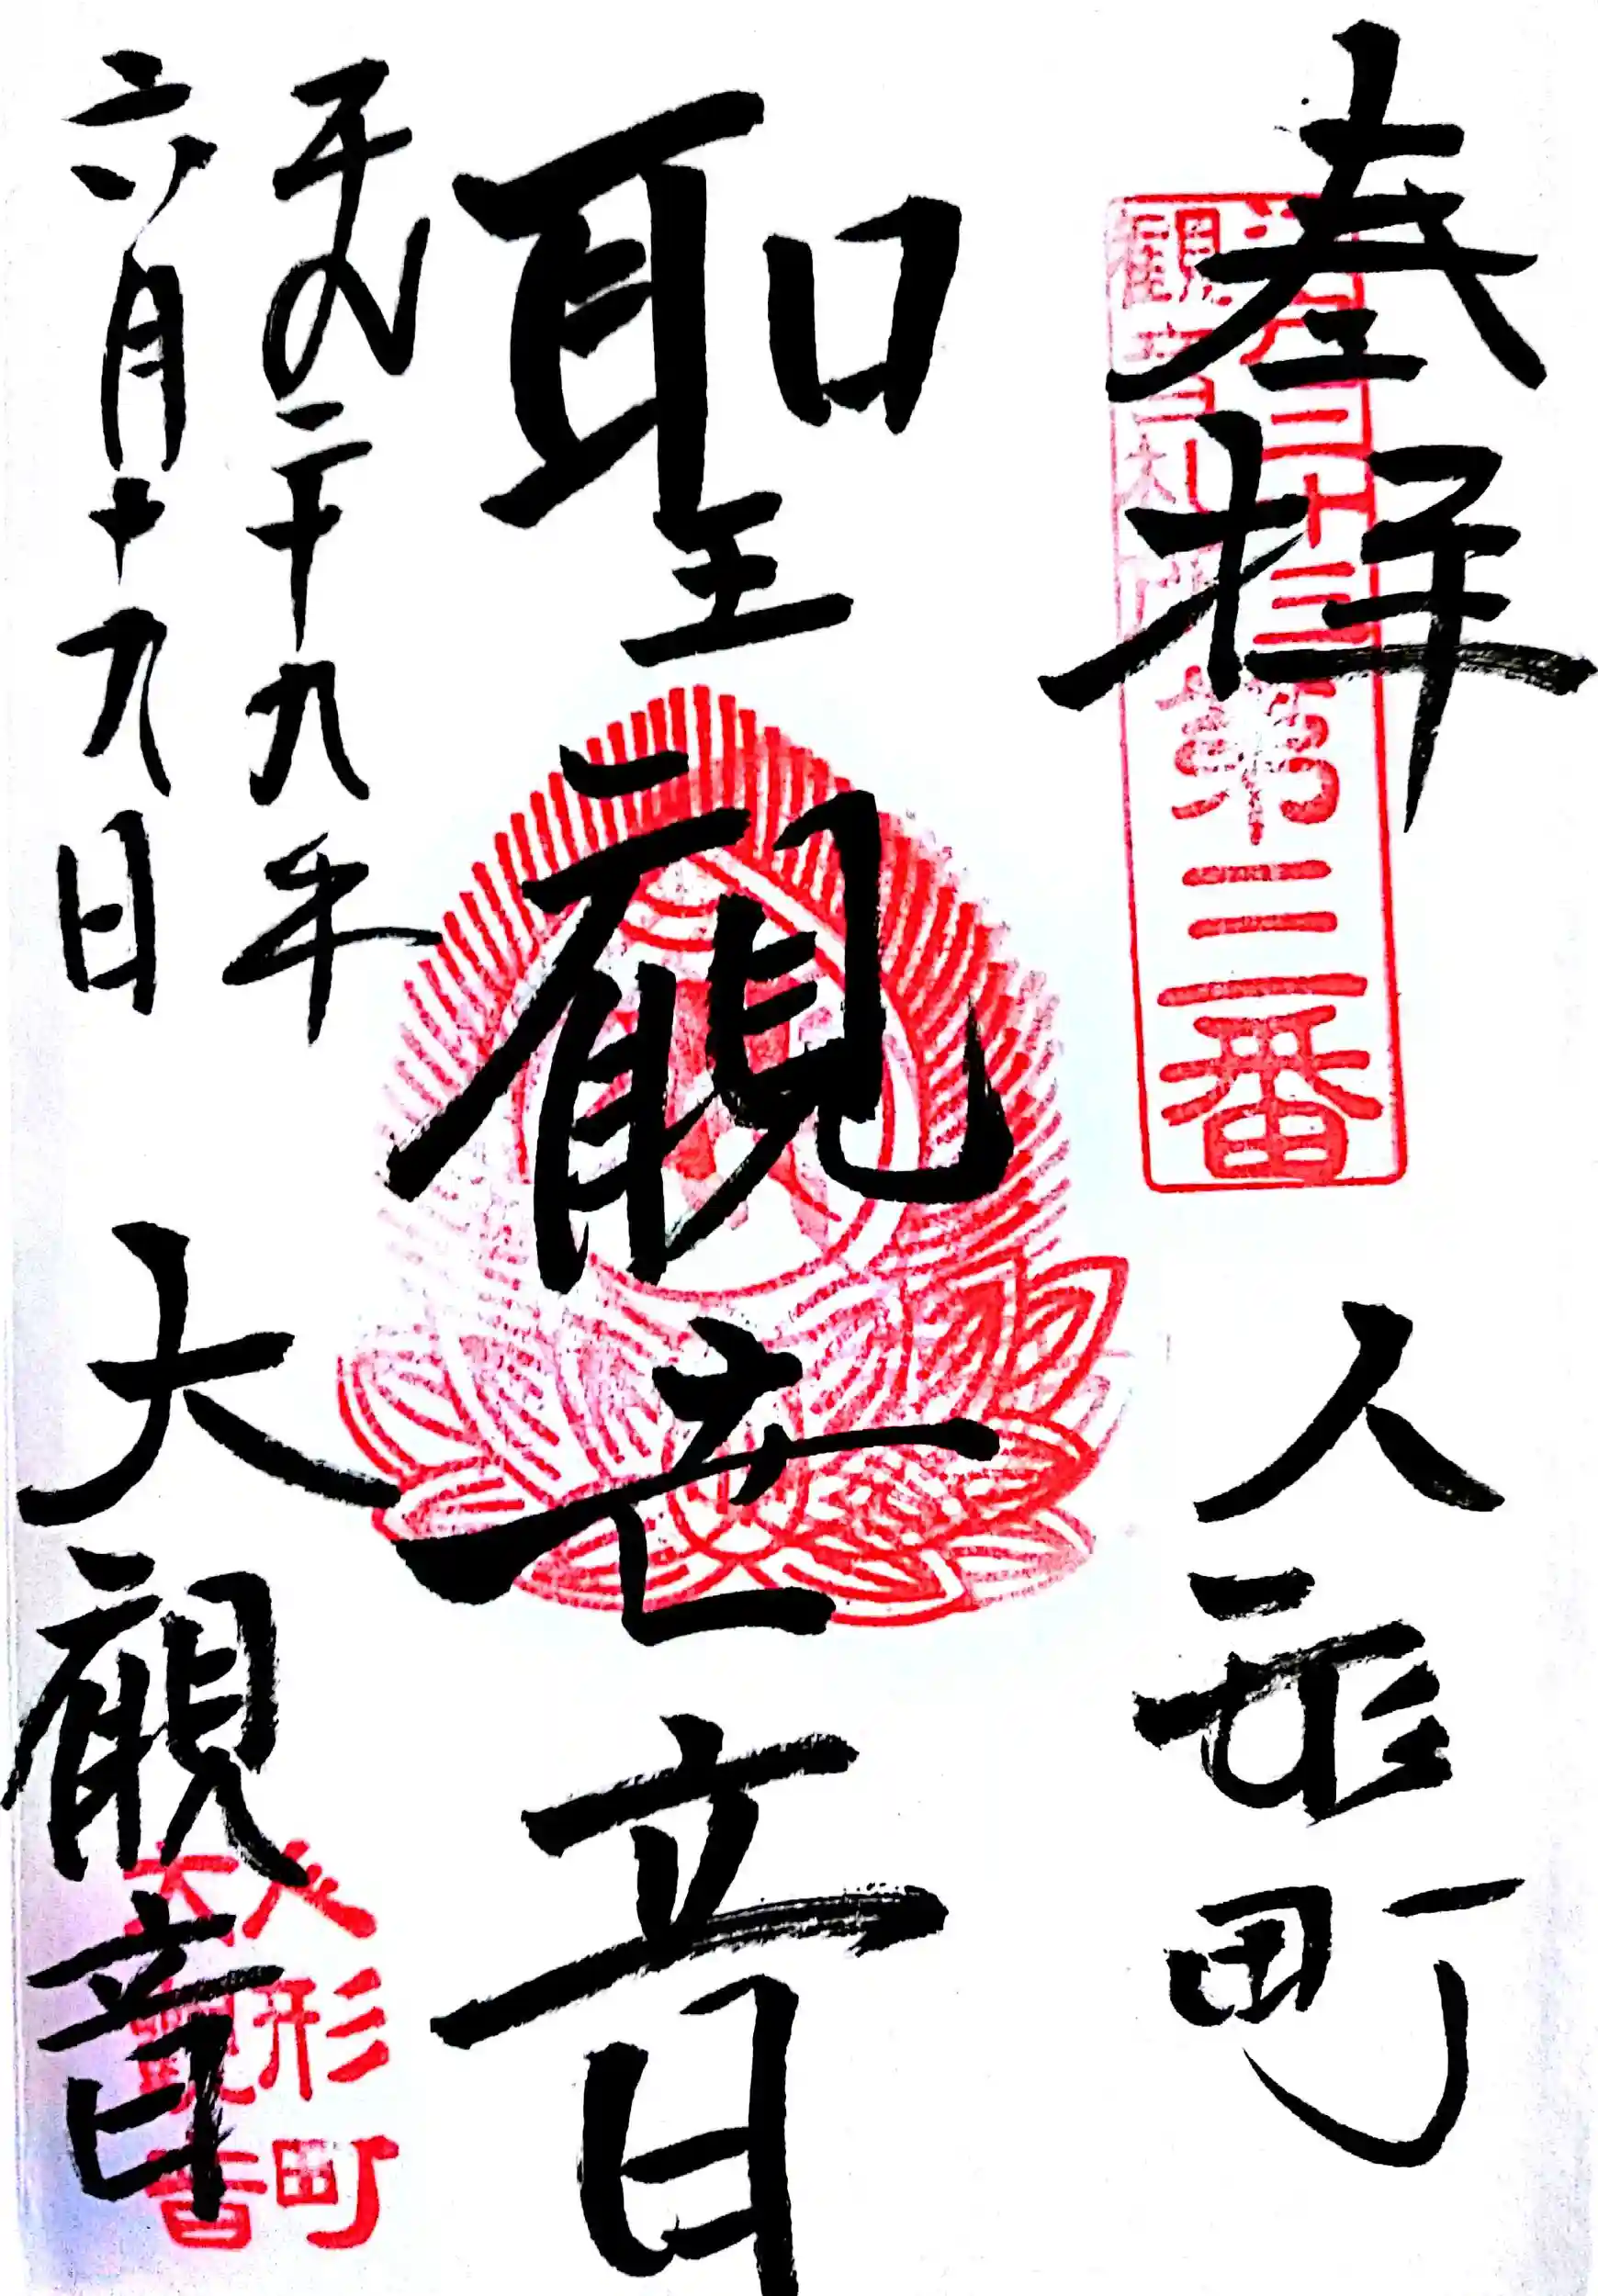 奉拝
人形町
聖観世音
平成二十九年
六月十九日
大観音
江戸三十三
観音札所
第三番
人形町
大観音